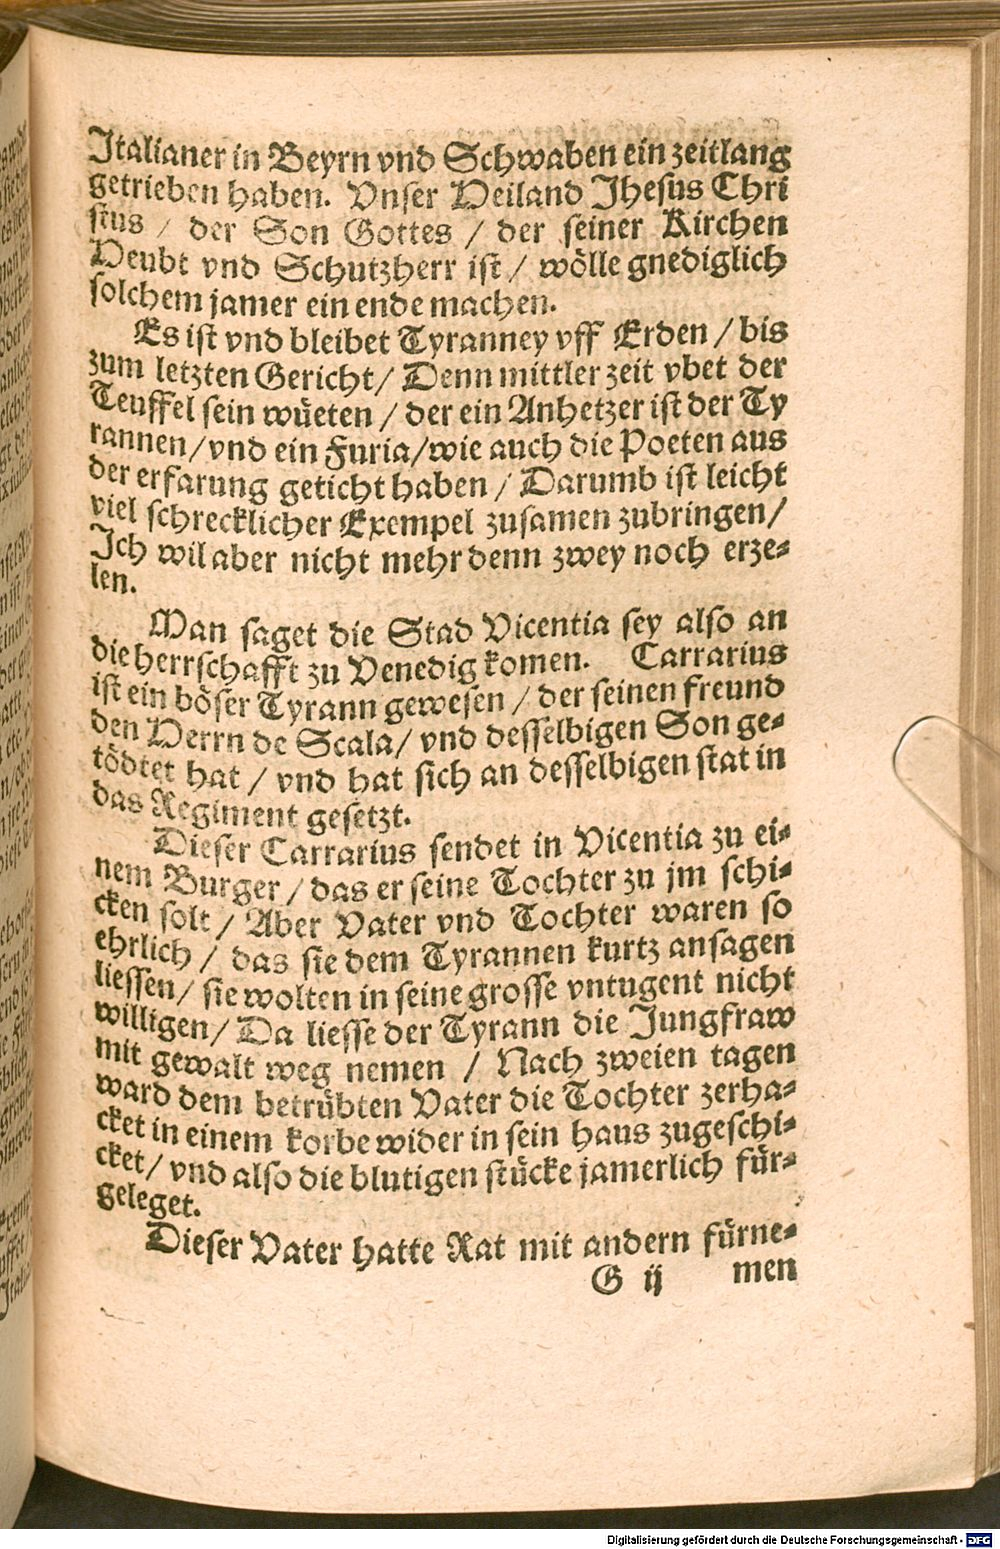 Italianer in Beyrn vnd Schwaben ein zeitlang
getrieben haben. Vnser Heiland Jhesus Chri
stus / der Son Gottes / der seiner Kirchen
Heubt vnd Schutzherr ist / wölle gnediglich
solchem jamer ein ende machen.
Es ist vnd bleibet Tyranney vff Erden / bis
zum letzten Gericht / Denn mittler zeit vbet der
Teuffel sein wüeten / der ein Anhetzer ist der Ty
rannen / vnd ein Furia / wie auch die Poeten aus
der erfarung geticht haben / Darumb ist leicht
viel schrecklicher Exempel zusamen zubringen /
Ich wil aber nicht mehr denn zwey noch erze-
len.
Man saget die Stad Vicentia sey also an
die herrschafft zu Venedig komen. Carrarius
ist ein böser Tyrann gewesen / der seinen freund
den Herrn de Scala / vnd desselbigen Son ge-
tödtet hat / vnd hat sich an desselbigen stat in
das Regiment gesetzt.
Dieser Carrarius sendet in Vicentia zu ei-
nem Burger / das er seine Tochter zu jm schi-
cken solt / Aber Vater vnd Tochter waren so
ehrlich / das sie dem Tyrannen kurtz ansagen
liessen / sie wolten in seine grosse vntugent nicht
willigen / Da liesse der Tyrann die Jungfraw
mit gewalt weg nemen / Nach zweien tagen
ward dem betrübten Vater die Tochter zerha-
cket in einem korbe wider in sein haus zugeschi-
cket / vnd also die blutigen stücke jamerlich für-
geleget.
Dieser Vater hatte Rat mit andern fürne-
G ij men
Digitalisierung gefördert durch die Deutsche Forschungsgemeinschaft - DFG